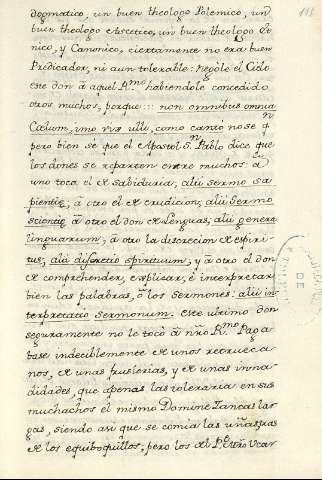 dogmatico, un buen theologo Polemico, un
buen theologo Ascetico, un buen theologo Et
nico, y Canonico, ciertamente no era buen
Predicador, ni aun tolerable: negòle el Cielo
este don à aquel R.mo habiendole concedido
otros muchos, porque::: non omnibus omnia
Cælum, imo vix ulli, como cantó no se qn
pero bien se que el Apostol Sn Pablo dice que
los dones se reparten entre muchos: à
uno toca el de sabiduria, alii sermo sa
pientiæ; à otro el de erudicion; alii sermo
scientiæ; à otro el don de Lenguas; alii genera
linguarum; à otro la discrecion de espiri
tus; alii discretio spirituum; y à otro el don
de comprehender, explicar, è interpretar
bien las palabras, ò los sermones: alii in
terpretatio sermonum. este ultimo don
seguramente no le tocò à nro R.mo Paga
base indeciblemente de unos retrueca
nos, de unas fruslerias, y de unas inna
didades, que apenas las toleraria en sus
muchachos el mismo Domine Zancas lar
gas, siendo asi que se comia las uñas tras
de los equiboquillos; pero los del P.e
DE